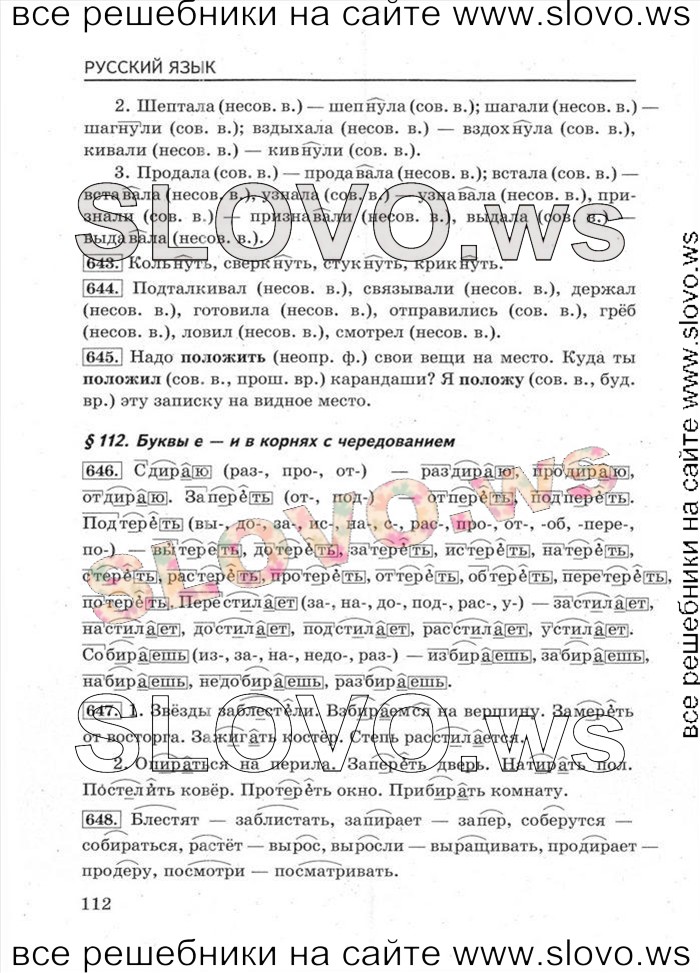 все решебники на сайте www.slovo.ws
РУССКИЙ ЯЗЫК
2. Шептала (несов. в.) — шепнула (сов. в.); шагали (несов. в.) —
шагнули (сов. в.); вздыхала (несов. в.) — вздохнула (сов. в.),
кивали (несов. в.) — кивнули (сов. в.).
3. Продала (сов. в.) — продавала (несов. в.); встала (сов. в.) —
вставала (несов. в.), узнала (сов. в.) — узнавала (несов. в.), при-
знали (сов. в.) — признавали (несов. в.), выдала (сов. в.) —
выдавала (несов. в.).
SLOVO.ws
643. Кольнуть, сверкнуть, стукнуть, крикнуть.
644. Подталкивал (несов. в.), связывали (несов. в.), держал
(несов. в.), готовила (несов. в.), отправились (сов. в.), грёб
(несов. в.), ловил (несов. в.), смотрел (несов. в.).
645. Надо положить (неопр. ф.) свои вещи на место. Куда ты
положил (сов. в., прош. вр.) карандаши? Я положу (сов. в., буд.
вр.) эту записку на видное место.
§ 112. Буквы е — и в корнях с чередованием
646. Сдираю (раз-, про-, от-) — раздираю, продираю,
отдираю. Запереть (от-, под-) — отпереть, подпереть.
Подтереть (вы-, до-, за-, ис-, на-, с-, рас-, про-, от-, -об, -пере-,
по-) — вытереть, дотереть, затереть, истереть, натереть,
стереть, растереть, протереть, оттереть, обтереть, перетереть,
потереть. Перестилает (за-, на-, до-, под-, рас-, у-) — застилает,
настилает, достилает, подстилает, расстилает, устилает.
Собираешь (из-, за-, на-, недо-, раз-) — избираешь, забираешь,
набираешь, недобираешь, разбираешь.
SLOVO.ws
647. 1. Звёзды заблестели. Взбираемся на вершину. Замереть
от восторга. Зажигать костёр. Степь расстилается.
2. Опираться на перила. Запереть дверь. Натирать пол.
Постелить ковёр. Протереть окно. Прибирать комнату.
SLOVO.ws
648. Блестят — заблистать, запирает — запер, соберутся —
собираться, растёт — вырос, выросли — выращивать, продирает —
продеру, посмотри — посматривать.
112
все решебники на сайте www.slovo.ws
все решебники на сайте www.slovo.ws